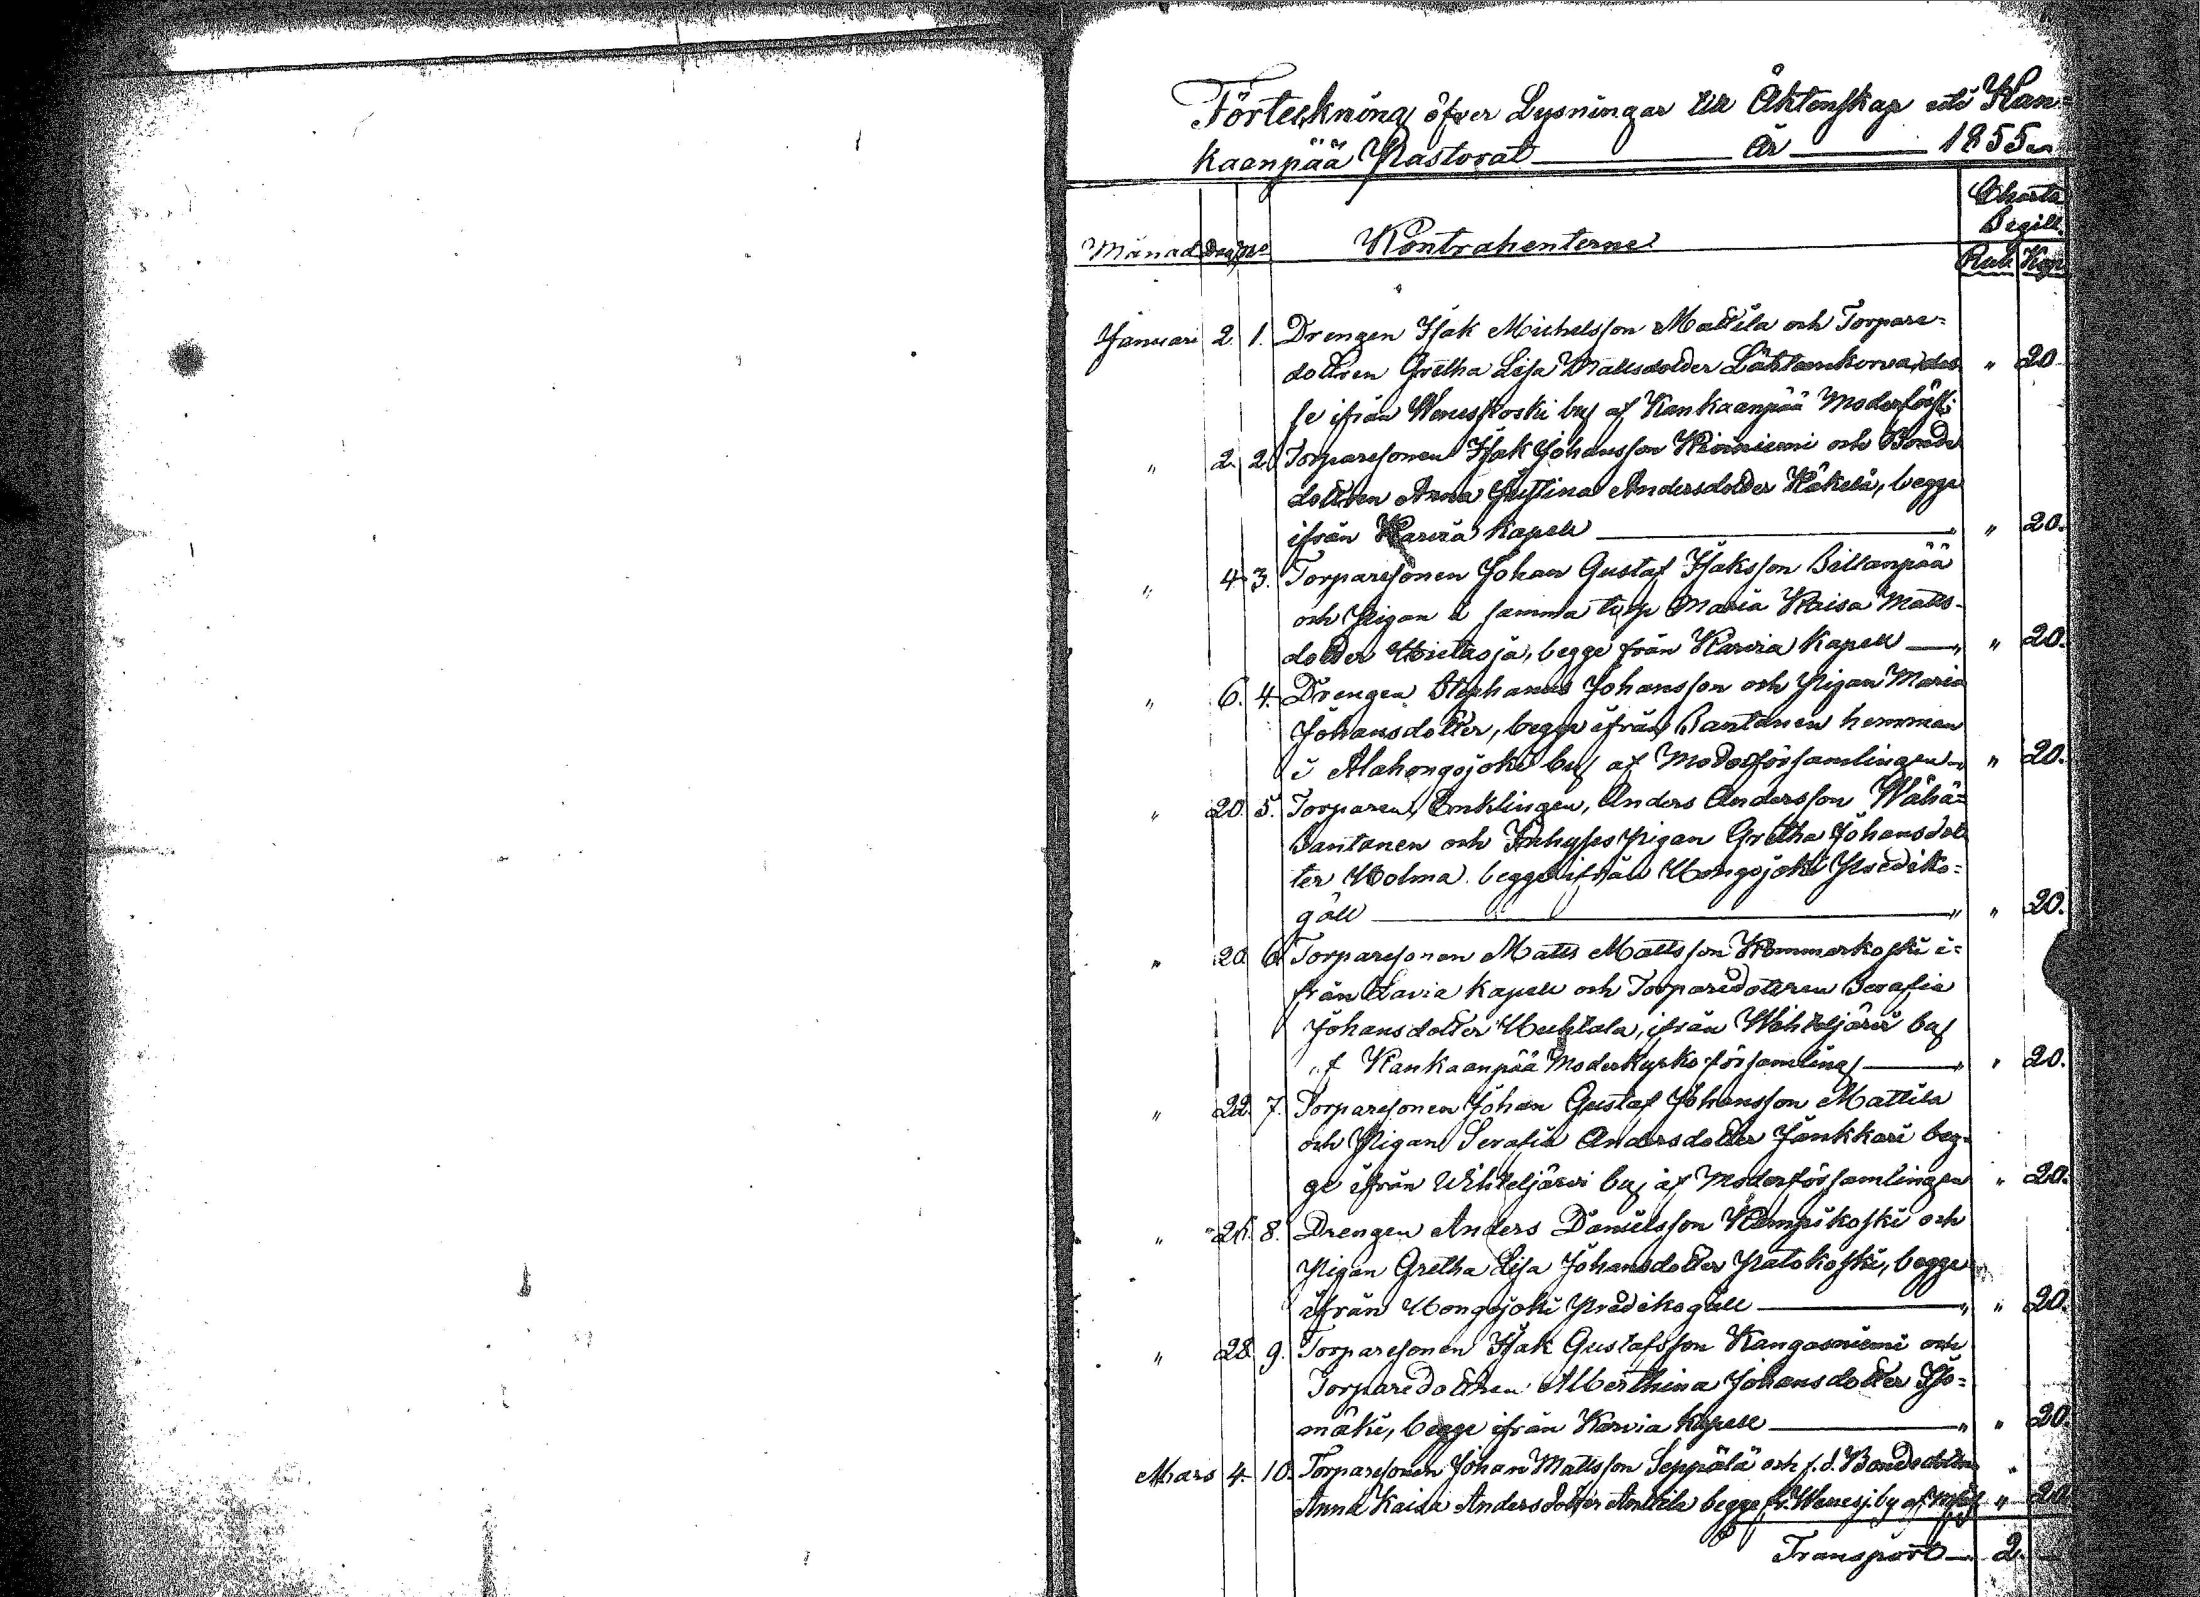 Förteckning öfver Lysningar till Äktenskap uti Kan=
kaanpää Pastorat år 1855
Charta
Sigill.
Månad Dag No Kontrahenterne
Rub. Kop.
Januari 2. 1. Drengen Isak Michelsson Mattila och Torpare=
dottren Gretha Lisa Mattsdotter Lähteenkorva, des " 20
se ifrån Weneskoski by af Kankaanpää Moderförs:
" 2. 2. Torparesonen Isak Johansson Kiviniemi och Bonde
dottren Anna Justina Andersdotter Häkelä, begge
ifrån Karvia Kapell " 20.
" 4. 3. Torparesonen Johan Gustaf Isaksson Sillanpää
och Pigan i samma torp Maria Kaisa Matts=
dotter Hietaoja, begge från Karvia Kapell " 20.
" 6. 4. Drengen Stephanus Johansson och Pigan Maria
Johansdotter, begge ifrån Santanen hemman
i Alahongojoki by af Moderförsamlingen " 20.
" 20. 5. Torparen, Enklingen, Anders Andersson Wähä=
Santanen och Inhyses Pigan Gretha Johansdot
ter Holma begge ifrån Hongojoki Prediko=
gäll " 20.
" 20. 6. Torparesonen Matts Mattsson Kommerkoski i=
från Lavia Kapell och Torparedottren Serafia
Johansdotter Huhtala, ifrån Wihteljärvi by
af Kankaanpää Moderkyrko församling " 20.
" 22. 7. Torparesonen Johan Gustaf Johansson Mattila
och Pigan Serafia Andersdotter Jänkkäri beg=
ge ifrån Wihteljärvi by af Moderförsamlingen " 20.
" 26. 8. Drengen Anders Danielsson Kampikoski och
Pigan Gretha Lisa Johansdotter Patokoski, begge
ifrån Hongojoki Predikogäll " 20.
" 28. 9. Torparesonen Isak Gustafsson Kangasniemi och
Torparedottren Alberthina Johansdotter Iso=
mäki, begge ifrån Karvia Kapell " 20.
Mars 4. 10. Torparesonen Johan Mattsson Seppälä och f.d. Bondedottren
Anna Kaisa Andersdotter Anttila begge fr. Wenesj. by af " 20
Transport 2.